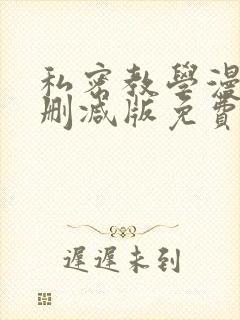 私密教學漫
删减版免費
遲遲未到